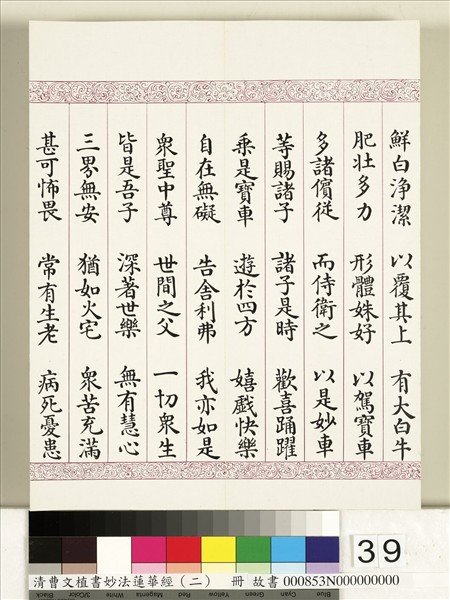 鮮白淨潔 以覆其上 有大白牛
肥壯多力 形體姝好 以駕寶車
多諸儐從 而侍衛之 以是妙車
等賜諸子 諸子是時 歡喜踊躍
乘是寶車 遊於四方 嬉戲快樂
自在無礙 告舍利弗 我亦如是
眾聖中尊 世間之父 一切眾生
皆是吾子 深著世樂 無有慧心
三界無安 猶如火宅 眾苦充滿
甚可怖畏 常有生老 病死憂患
39
Blue Cyan Green Yellow Red Magenta White 3/Color Black
清曹文植書妙法蓮華經（二） 冊 故書 000853N000000000